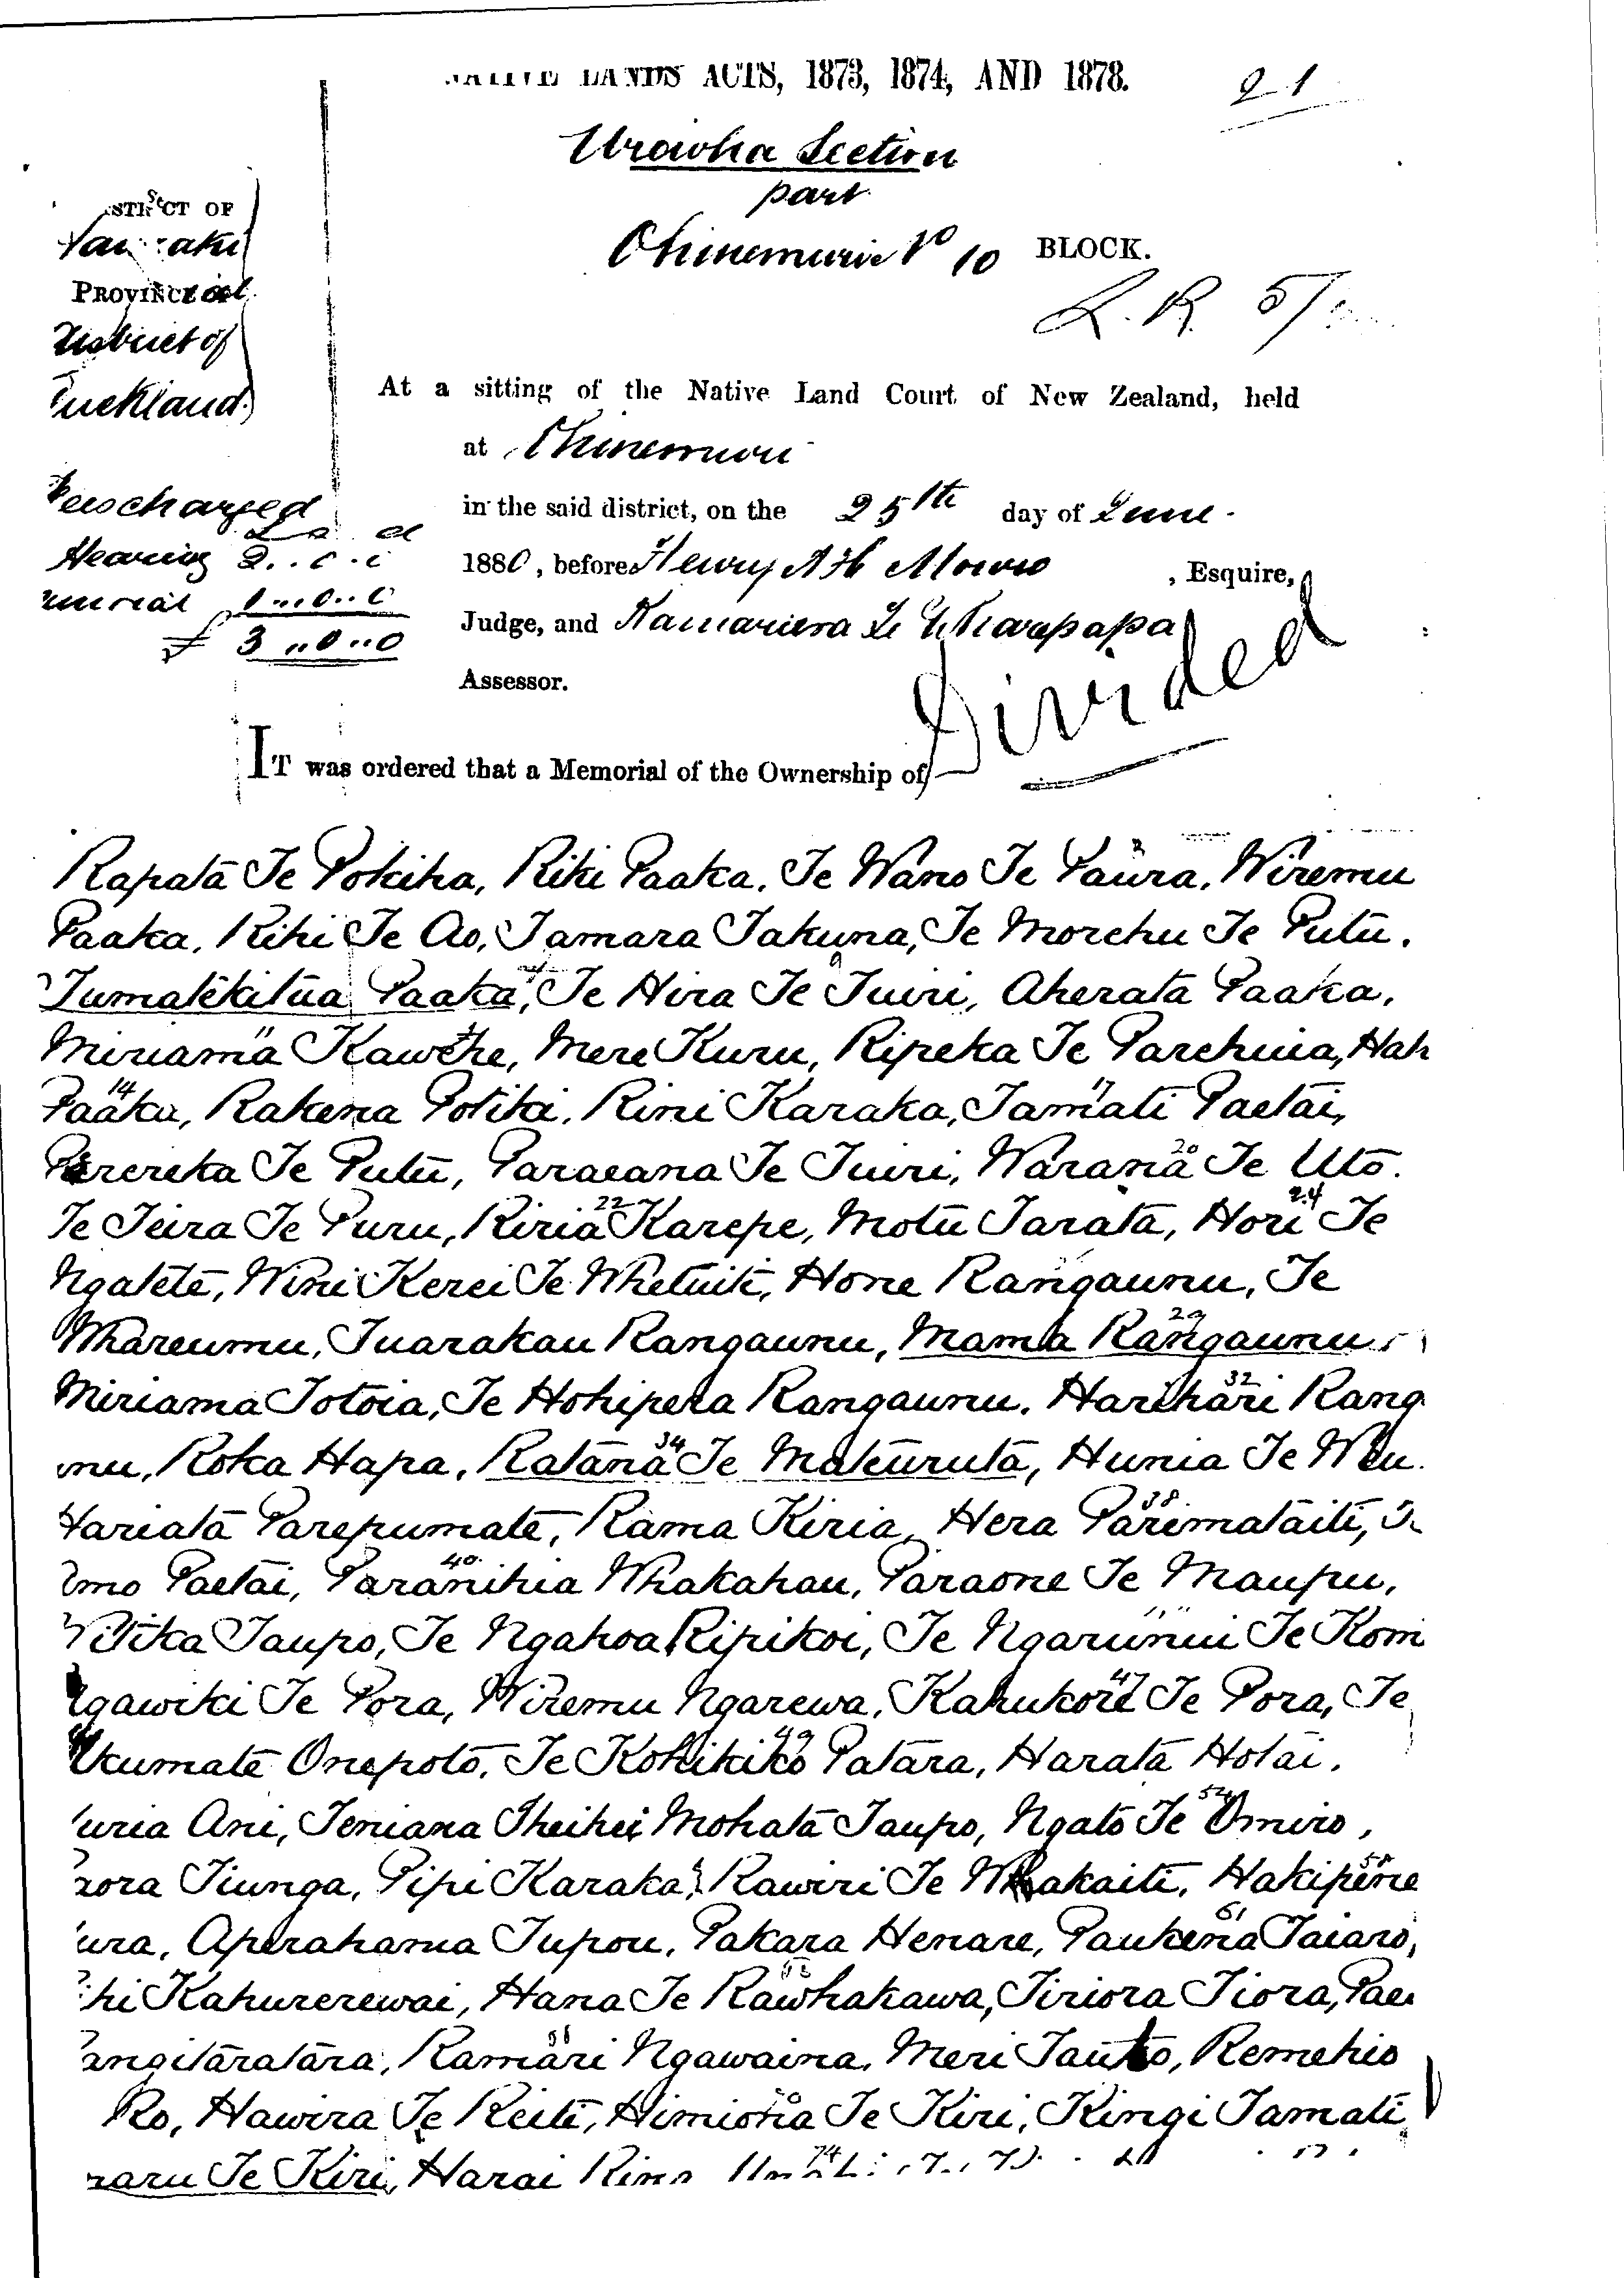 NATIVE LANDS ACTS, 1873, 1874, AND 1878.
21
Urawha Section
part
Ohinemuri No 10 BLOCK.
L. R. 57
DISTRICT OF
PROVINCIAL
District of
Auckland
At a sitting of the Native Land Court of New Zealand, held
at Ohinemuri
in the said district, on the 25th day of June
1880, before Henry , Esquire,
Judge, and
Assessor.
Hearing
Memorial 1..0..0
£ 3..0..0
Divided
IT was ordered that a Memorial of the Ownership of
Rapata Te Pokiha, Riki Paaka, Te Wano Te Paura, Wiremu
Paaka, Kihi Te Ao, Tamara Takuna, Te Morehu Te Putu.
Tumatekitua Paaka, Te Hira Te Tuiri, Aherata Paaka,
Miriama Kawehe, Mere Kuru, Ripeka Te Parehuia, Hah
14
Paaka, Rakena Potiki, Rini Karaka, Tamati Paetai,
Perereka Te Putu, Paraeana Te Tuiri, Warana 20 Te Uto.
Te Teira Te Puru, Kiria 22 Karepe, Motu Tarata, Hori 24 Te
Ngatete, Wini Kerei Te Whetuiti, Hone Rangaunu, Te
Whareumu, Tuarakau Rangaunu, Mama Rangaunu 29
Miriama Totoia, Te Hohipera Rangaunu, Harihari 32 Rang
unu, Roka Hapa, Ratana 34 Te Mateuruta, Hunia Te Weu.
Hariata Parepumate, Rama Kiria, Hera Paremataiti, 38
Paetai, Paranihia 40 Whakahau, Paraone Te Maupu,
Taupo, Te Ngahoa Ripikoi, Te Ngarunui Te Kom
Ngawiki Te Pora, Wiremu Ngarewa, Kahukore 47 Te Pora, Te
Ukumate Onepoto, Te Kohikiko 49 Patara, Harata Hotai.
uria Ani, Teniana Iheihei, Mohata Taupo, Ngato Te Omiro,
rora Tiunga, Pipi Karaka, Rawiri Te Whakaiti, Hakipene 58
ura, Aperahama Tupou, Pakara Henare, Paukena 61 Taiaro,
hi Kahurerewai, Hana Te Rawhakawa, Tiriora Tiora, Pae
angitaratara, Ramari Ngawaina, Meri Tauto, Remehio
Ro, Hawira Te Reiti, Himiona Te Kiri, Kingi Tamati,
raru Te Kiri, Harai